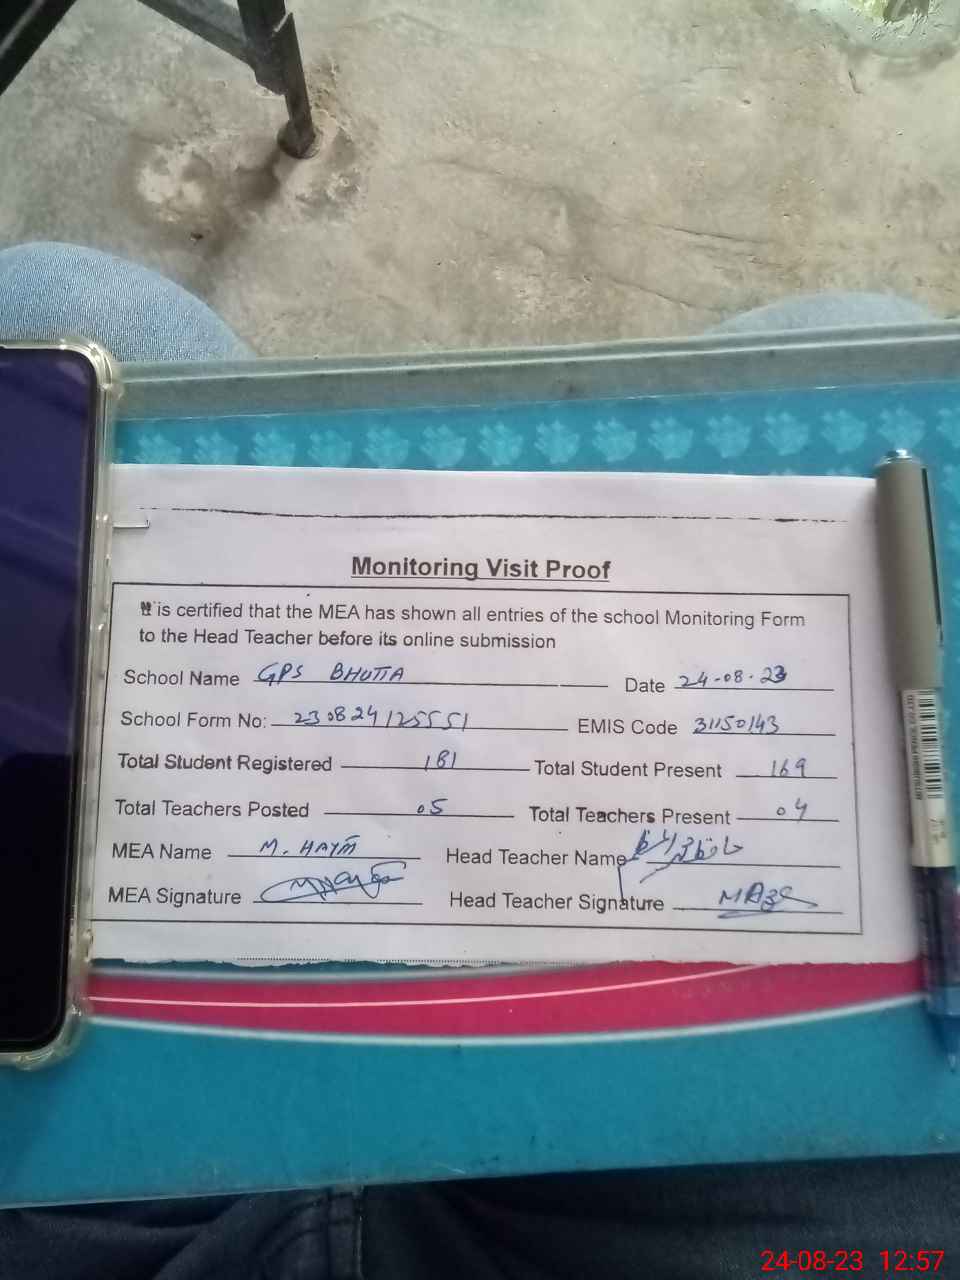 Monitoring Visit Proof
It is certified that the MEA has shown all entries of the school Monitoring Form
to the Head Teacher before its online submission
School Name GPS BHUTTA Date 24-08-23
School Form No: 230824125551 EMIS Code 31150143
Total Student Registered 181 Total Student Present 169
Total Teachers Posted 05 Total Teachers Present 04
MEA Name M. HAYM Head Teacher Name حافظ
MEA Signature Head Teacher Signature
24-08-23 12:57